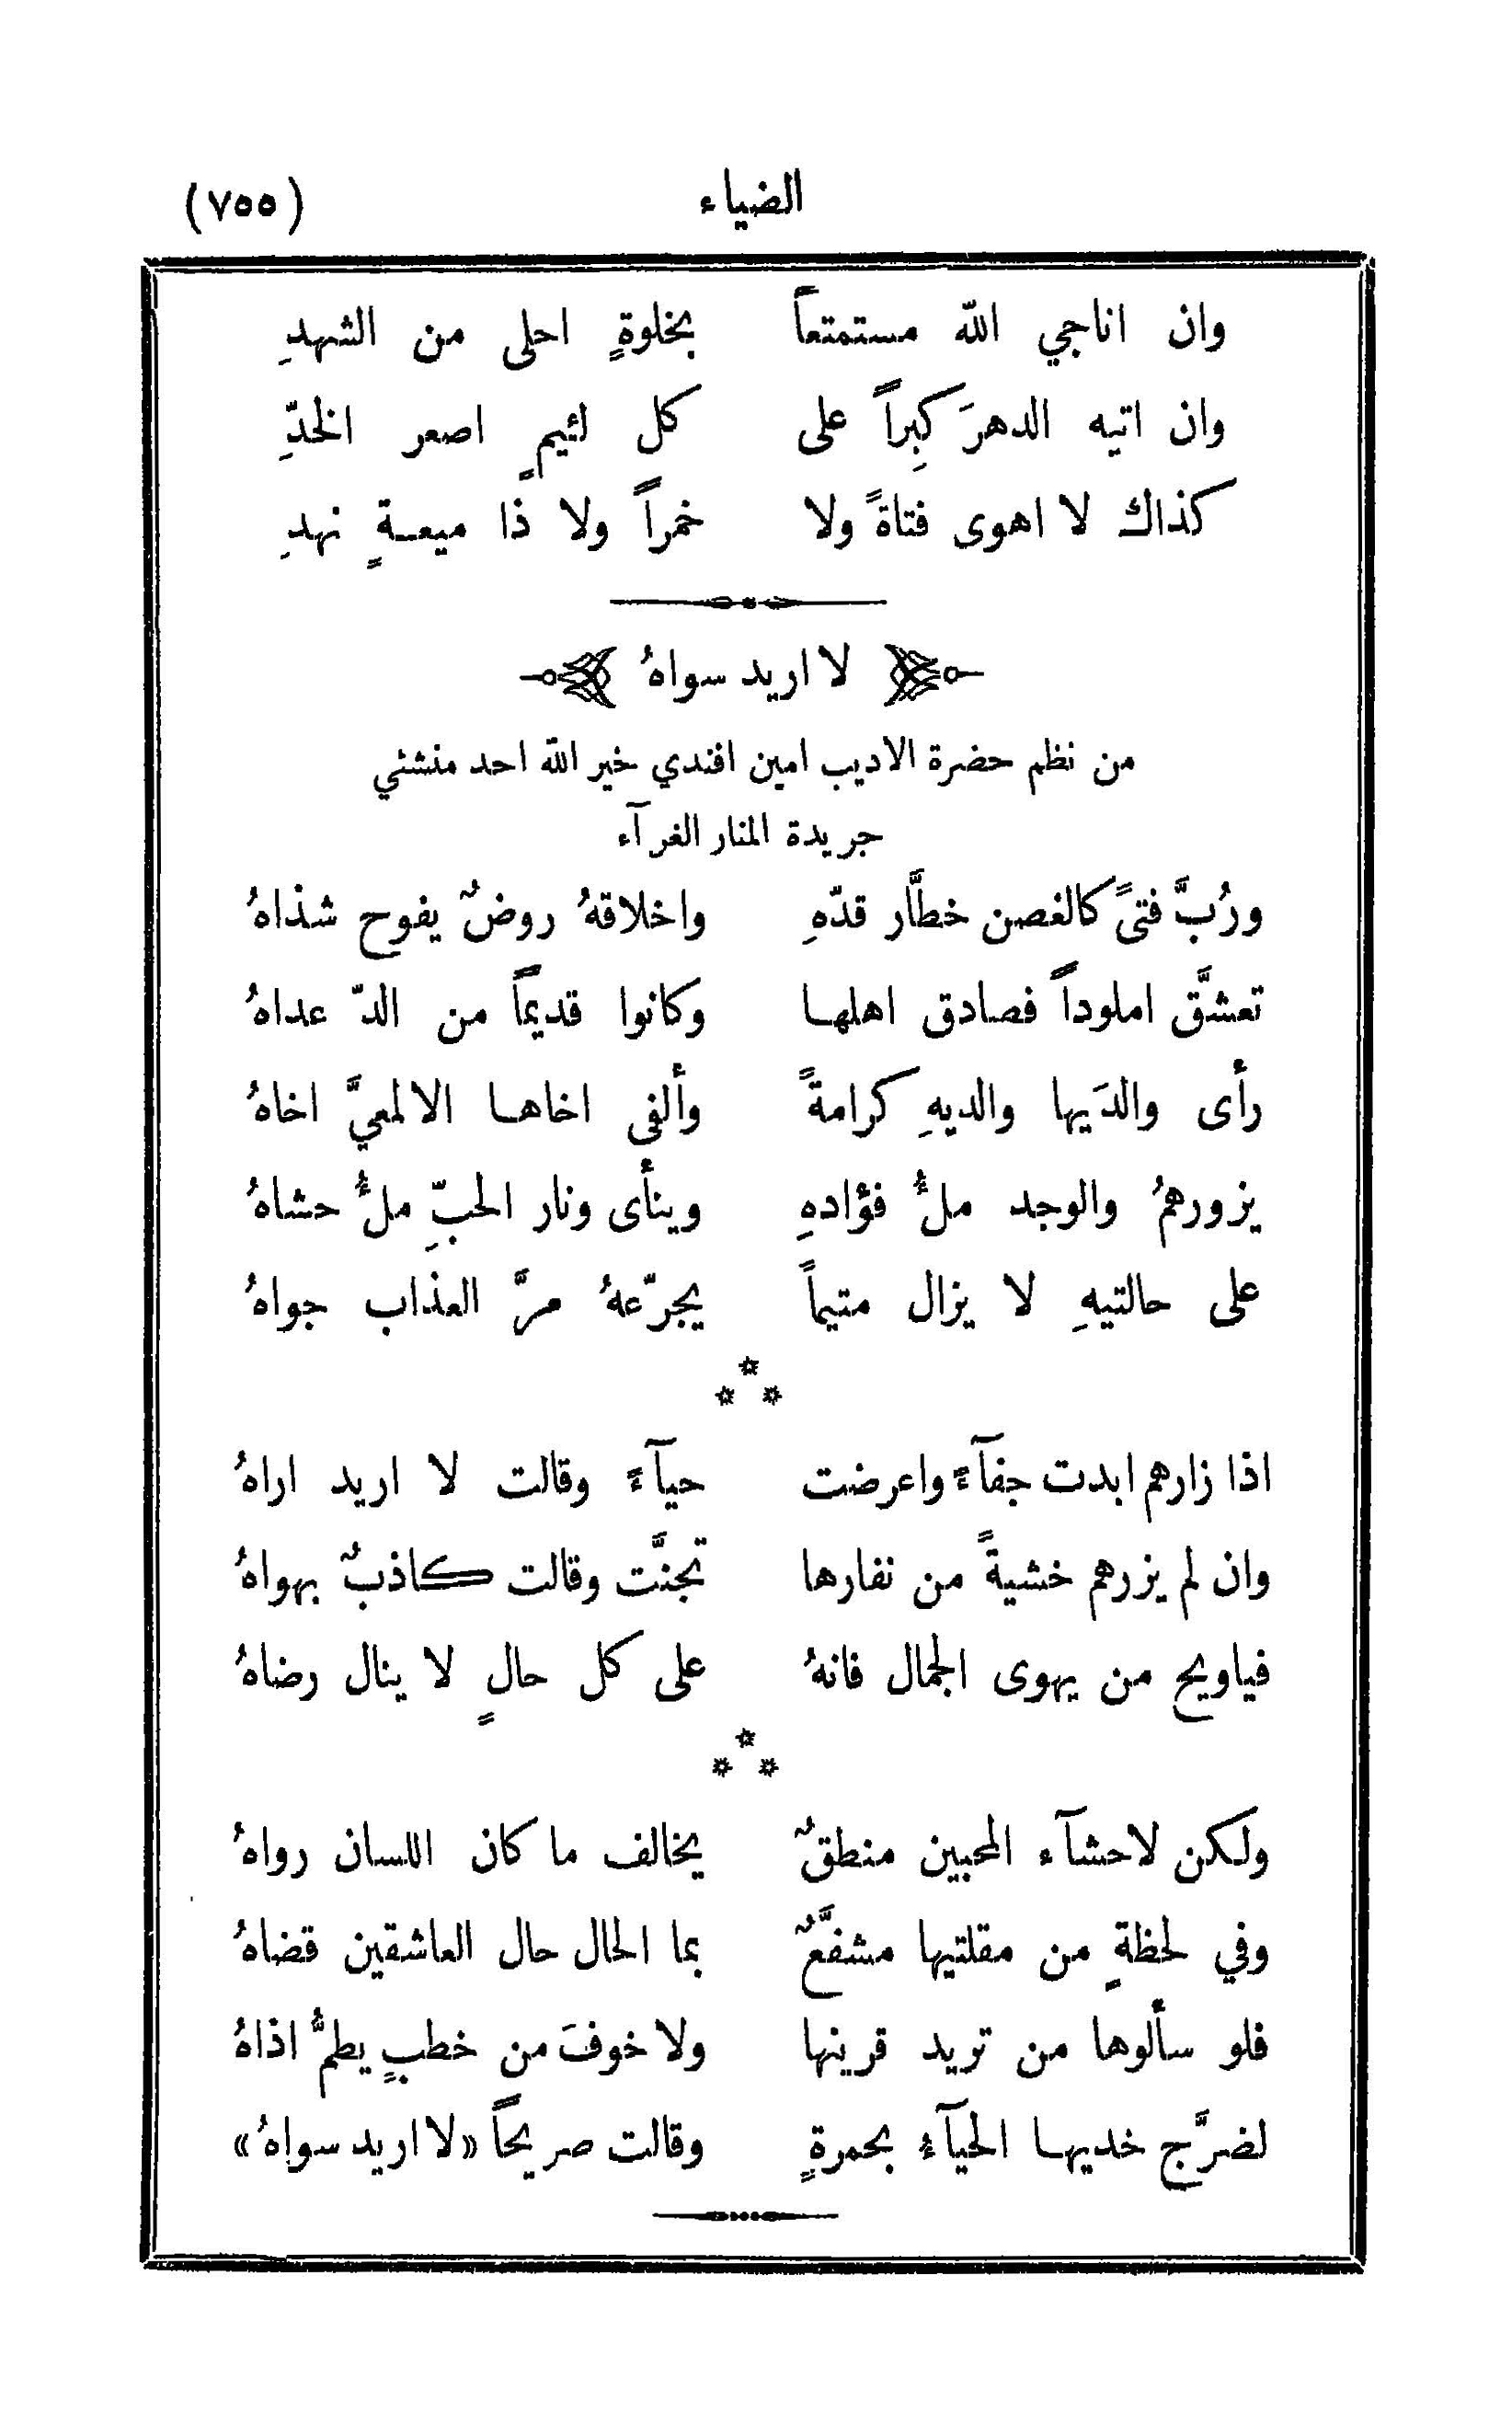 الضياء (٧٥٥)
وان اناجي الله مستمتعاً بخلوةٍ احلى من الشهدِ
وان اتيه الدهرَ كبِراً على كل لئيمٍ اصعر الخدِّ
كذاك لا اهوى فتاةً ولا خمراً ولا ذا ميعةٍ نهدِ
لا اريد سواهُ
من نظم حضرة الاديب امين افندي خير الله احد منشئي
جريدة المنار الغرآء
ورُبَّ فتىً كالغصن خطَّار قدّهِ واخلاقهُ روضٌ يفوح شذاهُ
تعشَّق املوداً فصادق اهلها وكانوا قديماً من الدّ عداهُ
رأى والدَيها والديهِ كرامةً وألفى اخاها الالمعيَّ اخاهُ
يزورهمُ والوجد ملُّ فؤادهِ وينأى ونار الحبِّ ملُّ حشاهُ
على حالتيهِ لا يزال متيماً يجرّعهُ مرَّ العذاب جواهُ
* * *
اذا زارهم ابدت جفآءً واعرضت حيآءً وقالت لا اريد اراهُ
وان لم يزرهم خشيةً من نفارها تجنَّت وقالت كاذبٌ بهواهُ
فياويح من يهوى الجمال فانهُ على كل حالٍ لا ينال رضاهُ
* * *
ولكن لاحشآء المحبين منطقٌ يخالف ما كان اللسان رواهُ
وفي لحظةٍ من مقلتيها مشفَّعٌ بما الحال حال العاشقين قضاهُ
فلو سألوها من تريد قرينها ولا خوفَ من خطبٍ يطمُّ اذاهُ
لضرَّج خديها الحيآءُ بحمرةٍ وقالت صريحاً «لا اريد سواهُ»